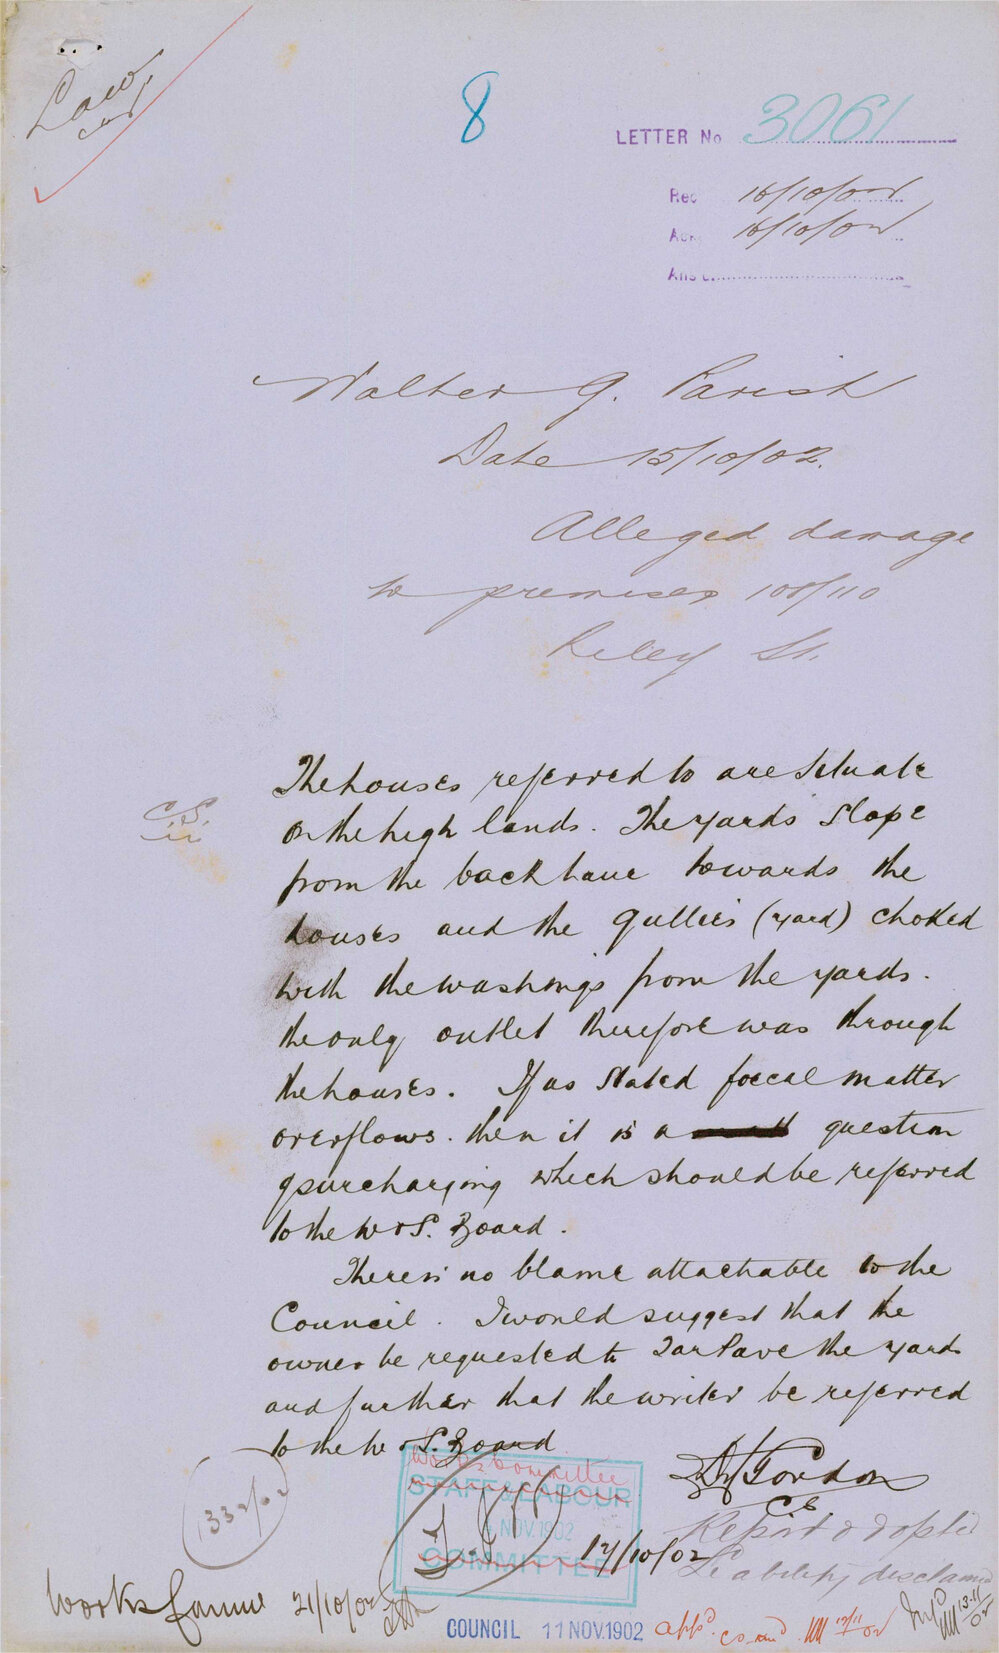 Law
8
LETTER No 3061
Rec 16/10/02
Ack 16/10/02
Ans d.
Walter G. Parish
Date 15/10/02.
Alleged damage
to premises 108/110
Riley St.
C.S.
The houses referred to are situate
on the high lands. The yards slope
from the back lane towards the
houses and the gullies (yard) choked
with the washings from the yards.
the only outlet therefore was through
the houses. If as stated foecal matter
overflows. then it is a question
of surcharging which should be referred
to the W & S. Board.
There is no blame attachable to the
Council. I would suggest that the
owner be requested to Tar Pave the yards
and further that the writer be referred
to the W & S. Board
Works Committee
STAFF & LABOUR
NOV. 1902
COMMITTEE
Gordon
C E
17/10/02
1332/02
Report adopted
Liability disclaimed
Works Comme 21/10/02
COUNCIL 11 NOV. 1902
appd. 12/11/02
13-11/02